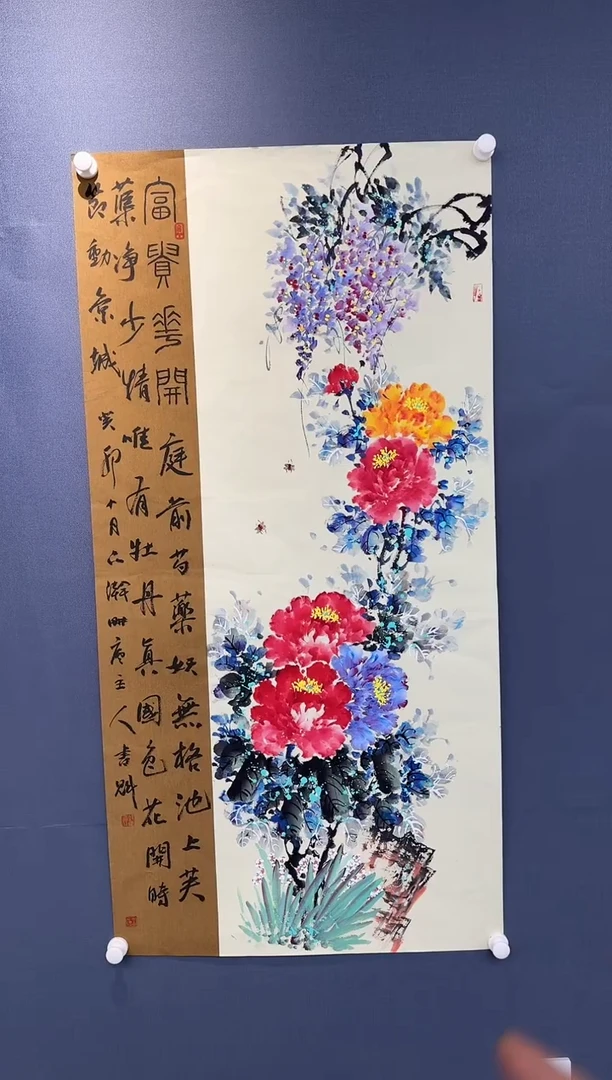 富貴花開庭前芍藥妖無格池上芙
蕖净少情唯有牡丹真國色花開時
節動京城 癸卯十月 瀚 主人書